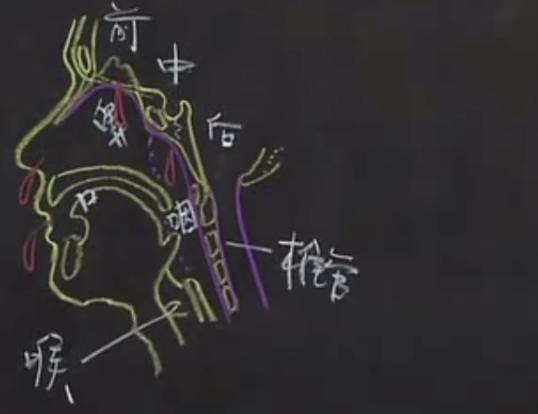 前
中
后
鼻
口
咽
椎管
喉